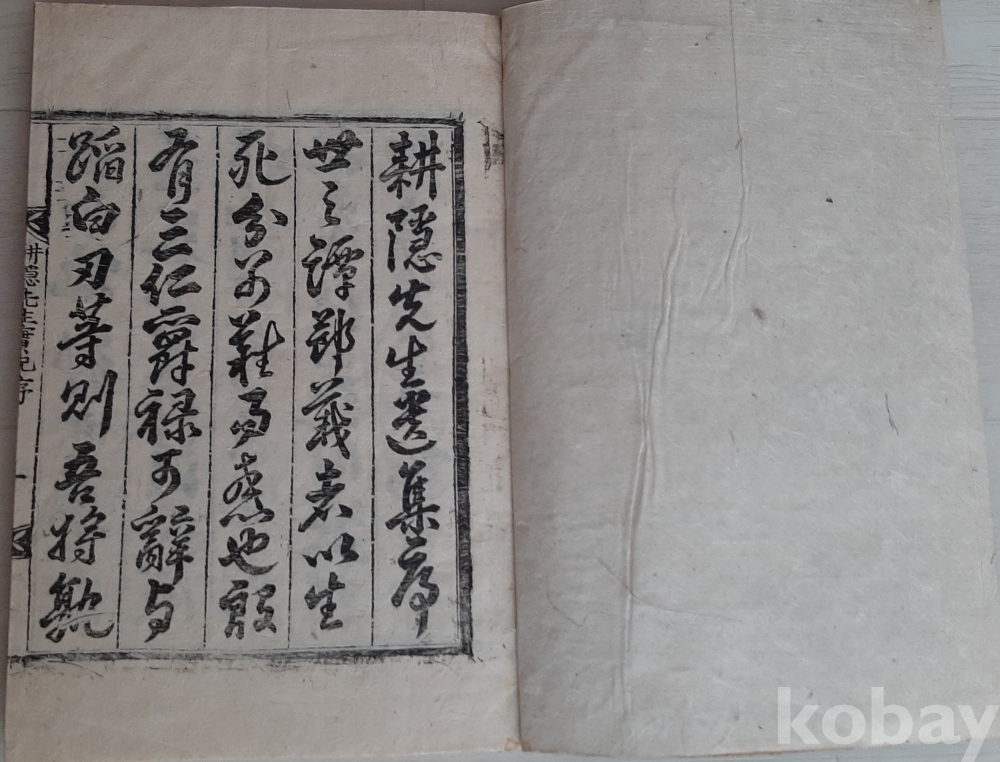 耕隱先生遺集序
世之譚節義者以生
死分難易也殷
有三仁爵祿可辭與
蹈白刃等則吾將孰
耕隱先生實紀序 一
kobay